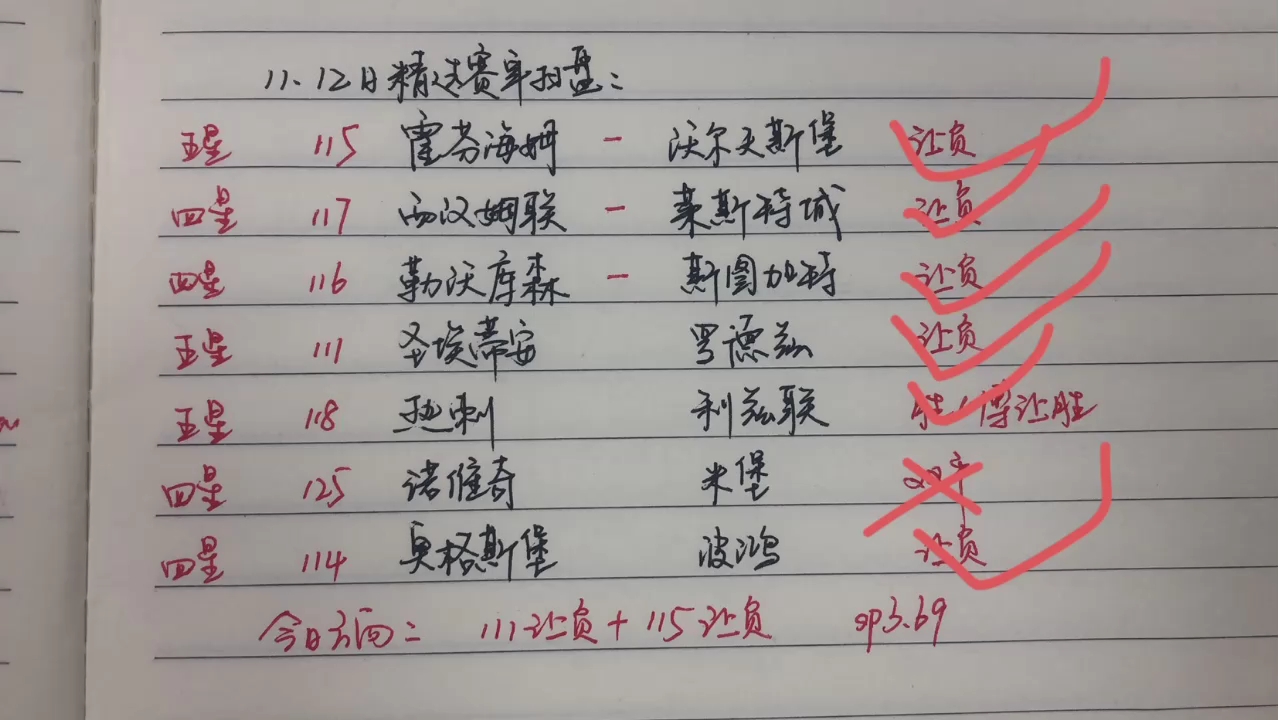 11.12日精选赛事扫盘:
五星 115 霍芬海姆 - 沃尔夫斯堡 让负
四星 117 西汉姆联 - 莱斯特城 让负
四星 116 勒沃库森 - 斯图加特 让负
五星 111 圣埃蒂安 罗德兹 让负
五星 118 热刺 利兹联 胜/博让胜
四星 125 诺维奇 米堡
四星 114 奥格斯堡 波鸿 让负
今日方向: 111让负+115让负 op3.69